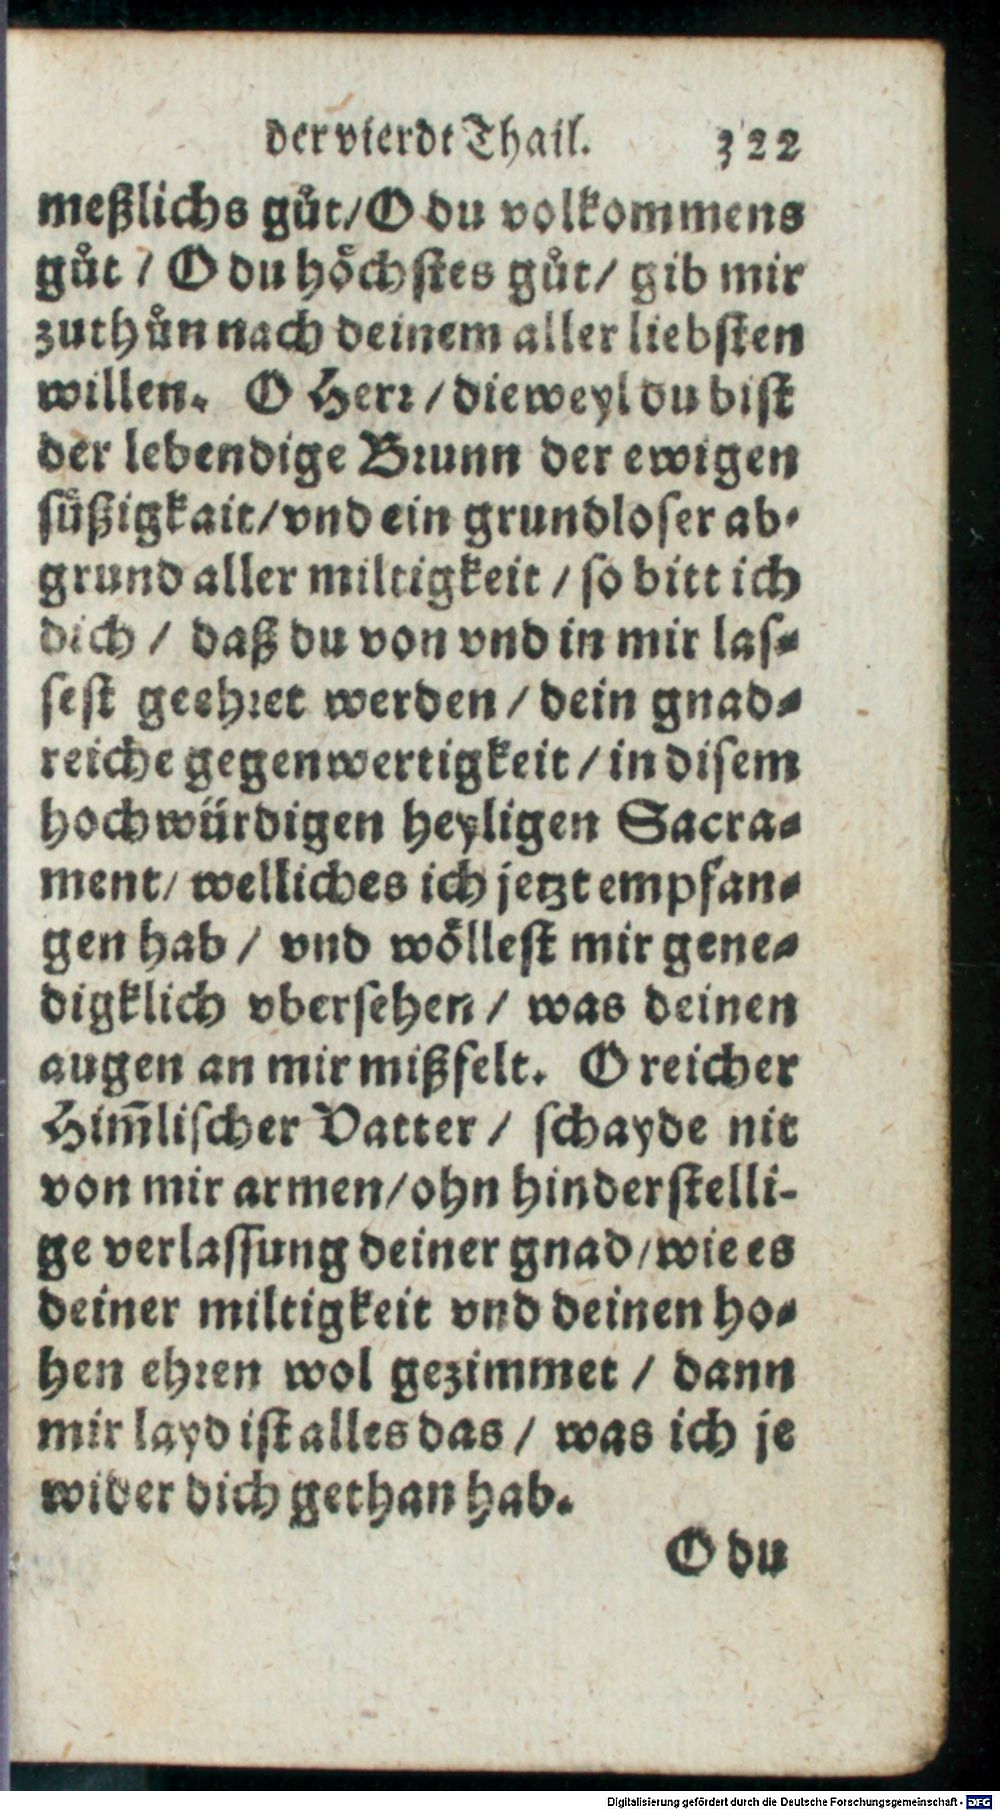 der vierdt Thail. 322
meßlichs gůt/ O du volkommens
gůt / O du hoͤchstes gůt/ gib mir
zuthůn nach deinem aller liebsten
willen. O Herr / dieweyl du bist
der lebendige Brunn der ewigen
suͤßigkait/ vnd ein grundloser ab-
grund aller miltigkeit / so bitt ich
dich / daß du von vnd in mir las-
sest geehret werden / dein gnad-
reiche gegenwertigkeit / in disem
hochwürdigen heyligen Sacra-
ment/ welliches ich jetzt empfan-
gen hab / vnd woͤllest mir gene-
digklich vbersehen / was deinen
augen an mir mißfelt. O reicher
Him̃lischer Vatter / schayde nit
von mir armen/ ohn hinderstelli-
ge verlassung deiner gnad/ wie es
deiner miltigkeit vnd deinen ho-
hen ehren wol gezimmet / dann
mir layd ist alles das / was ich je
wider dich gethan hab.
O du
Digitalisierung gefördert durch die Deutsche Forschungsgemeinschaft - DFG